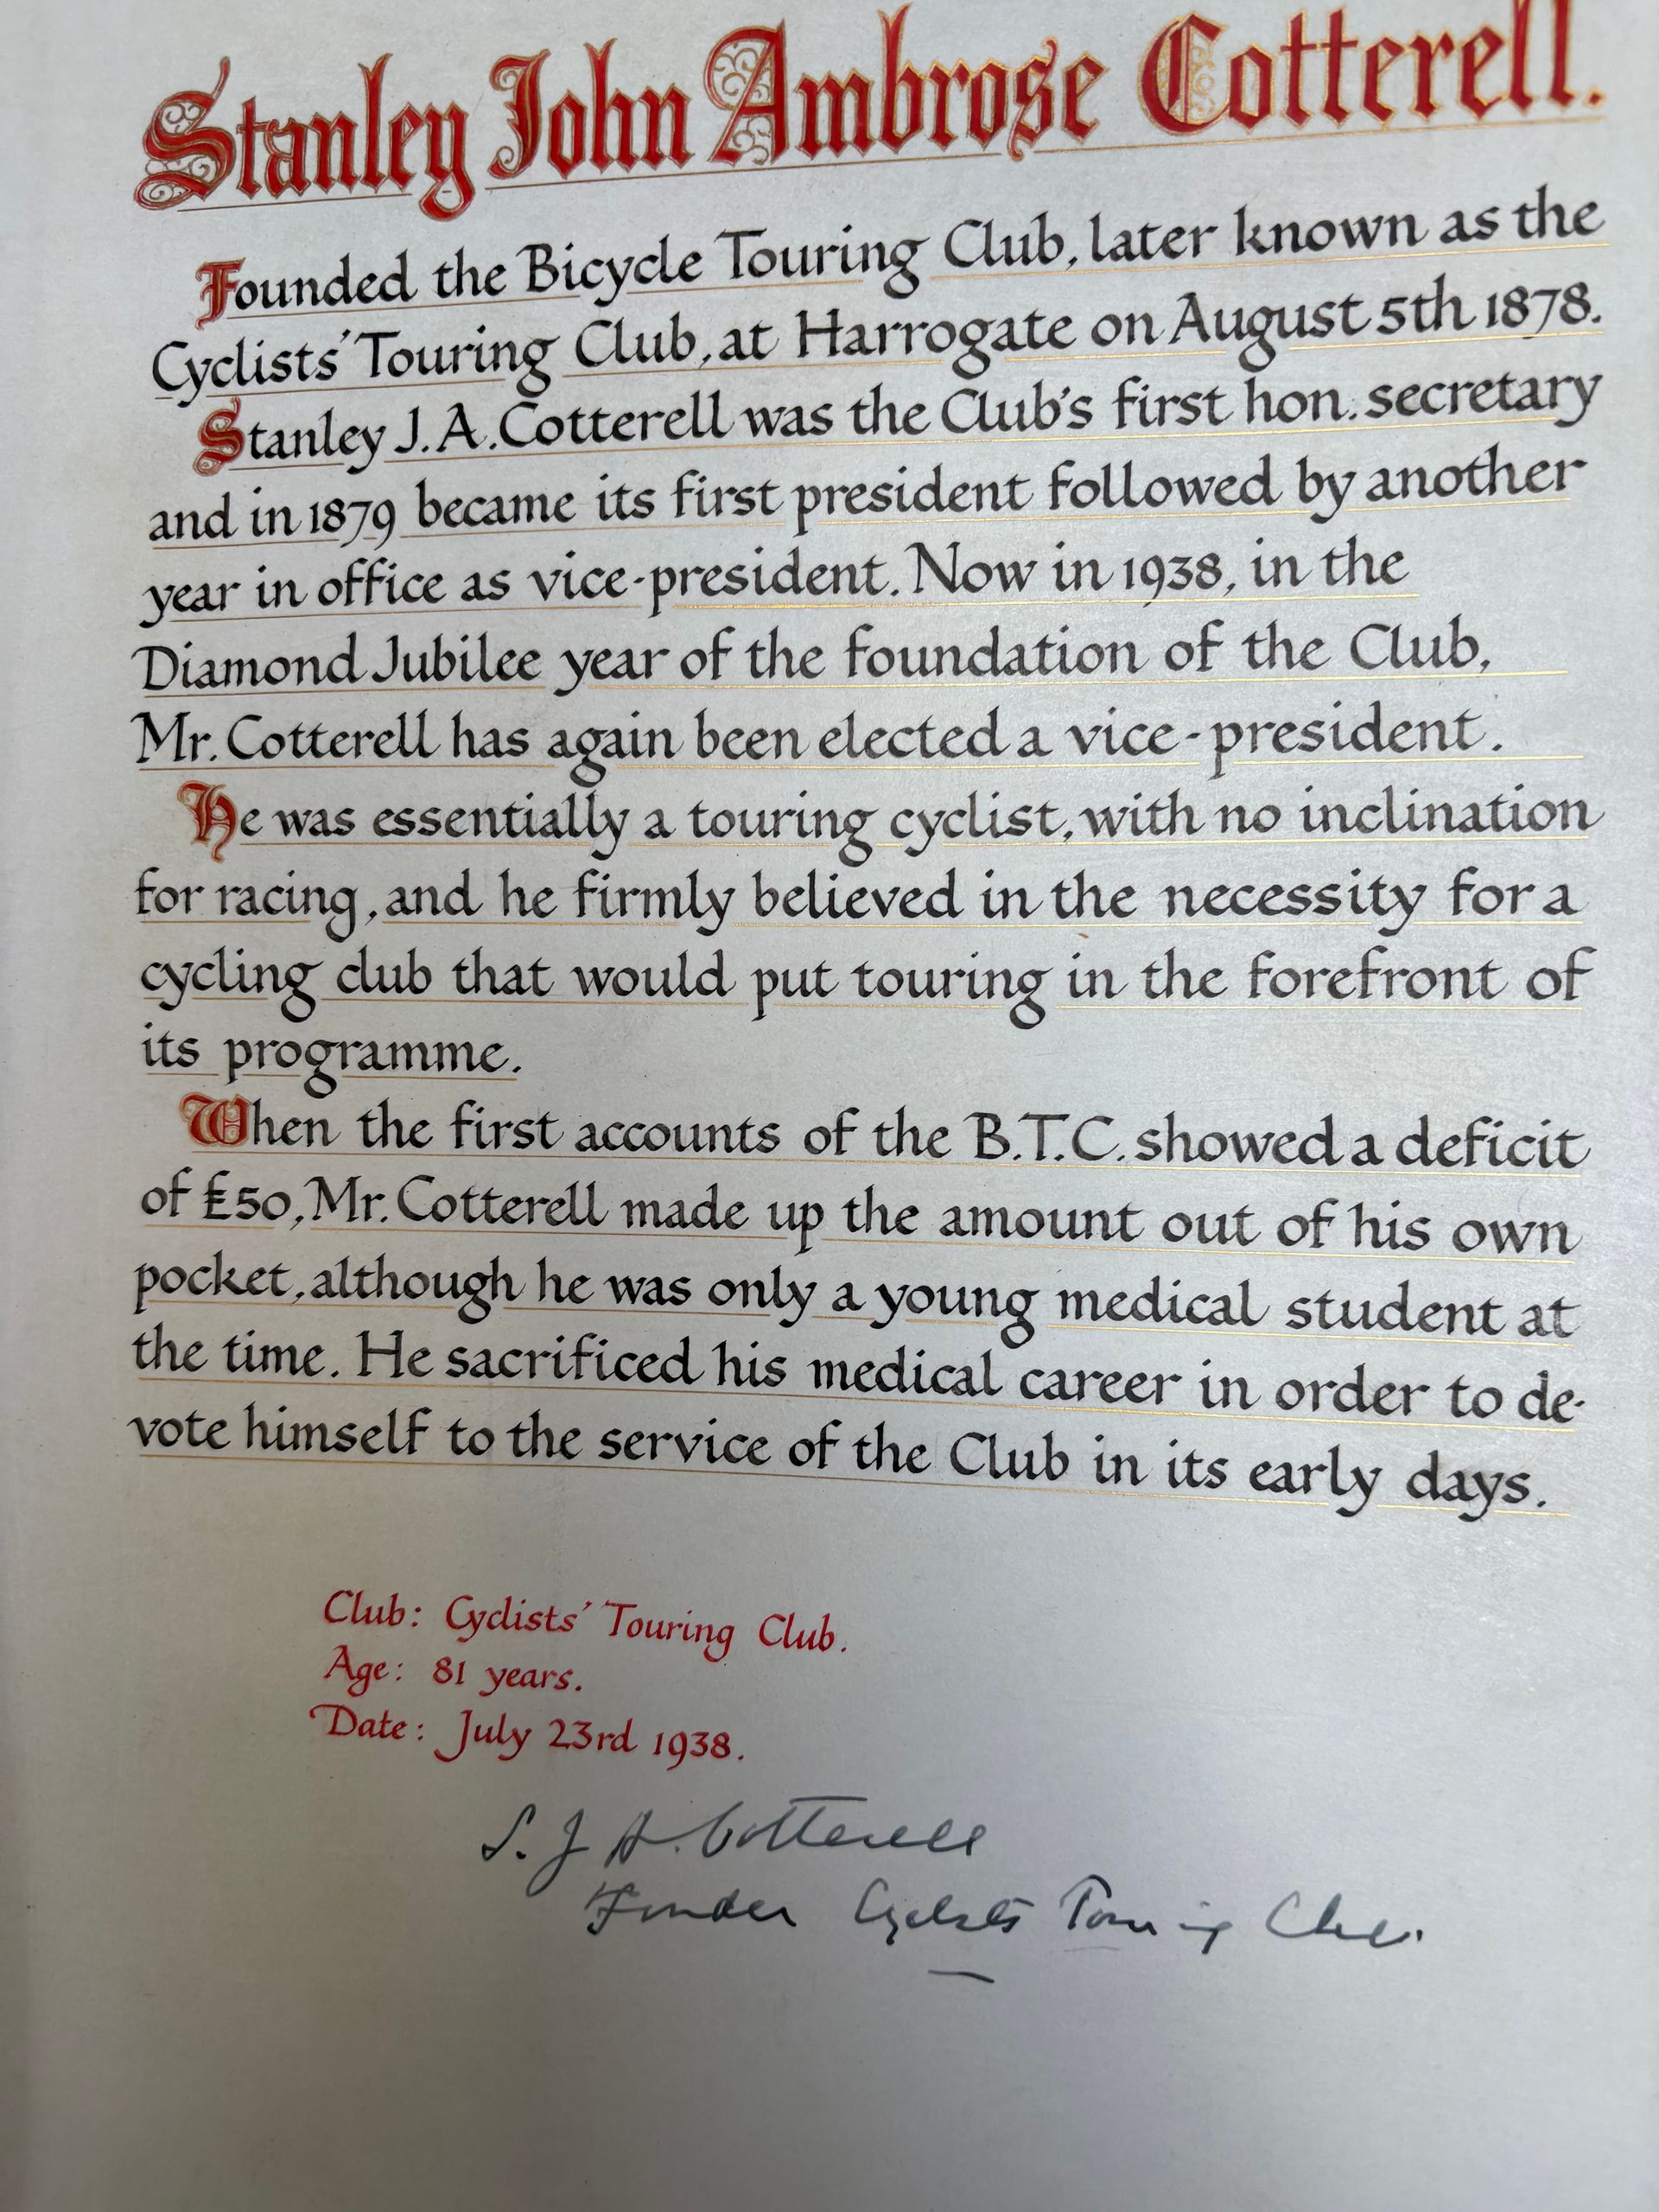 Stanley John Ambrose Cotterell.
Founded the Bicycle Touring Club, later known as the
Cyclists' Touring Club, at Harrogate on August 5th 1878.
Stanley J. A. Cotterell was the Club's first hon. secretary
and in 1879 became its first president followed by another
year in office as vice-president. Now in 1938, in the
Diamond Jubilee year of the foundation of the Club,
Mr. Cotterell has again been elected a vice-president.
He was essentially a touring cyclist, with no inclination
for racing, and he firmly believed in the necessity for a
cycling club that would put touring in the forefront of
its programme.
When the first accounts of the B.T.C. showed a deficit
of £50, Mr. Cotterell made up the amount out of his own
pocket, although he was only a young medical student at
the time. He sacrificed his medical career in order to de-
vote himself to the service of the Club in its early days.
Club: Cyclists' Touring Club.
Age: 81 years.
Date: July 23rd 1938.
S. J A. Cotterell
Founder Cyclists Touring Club.